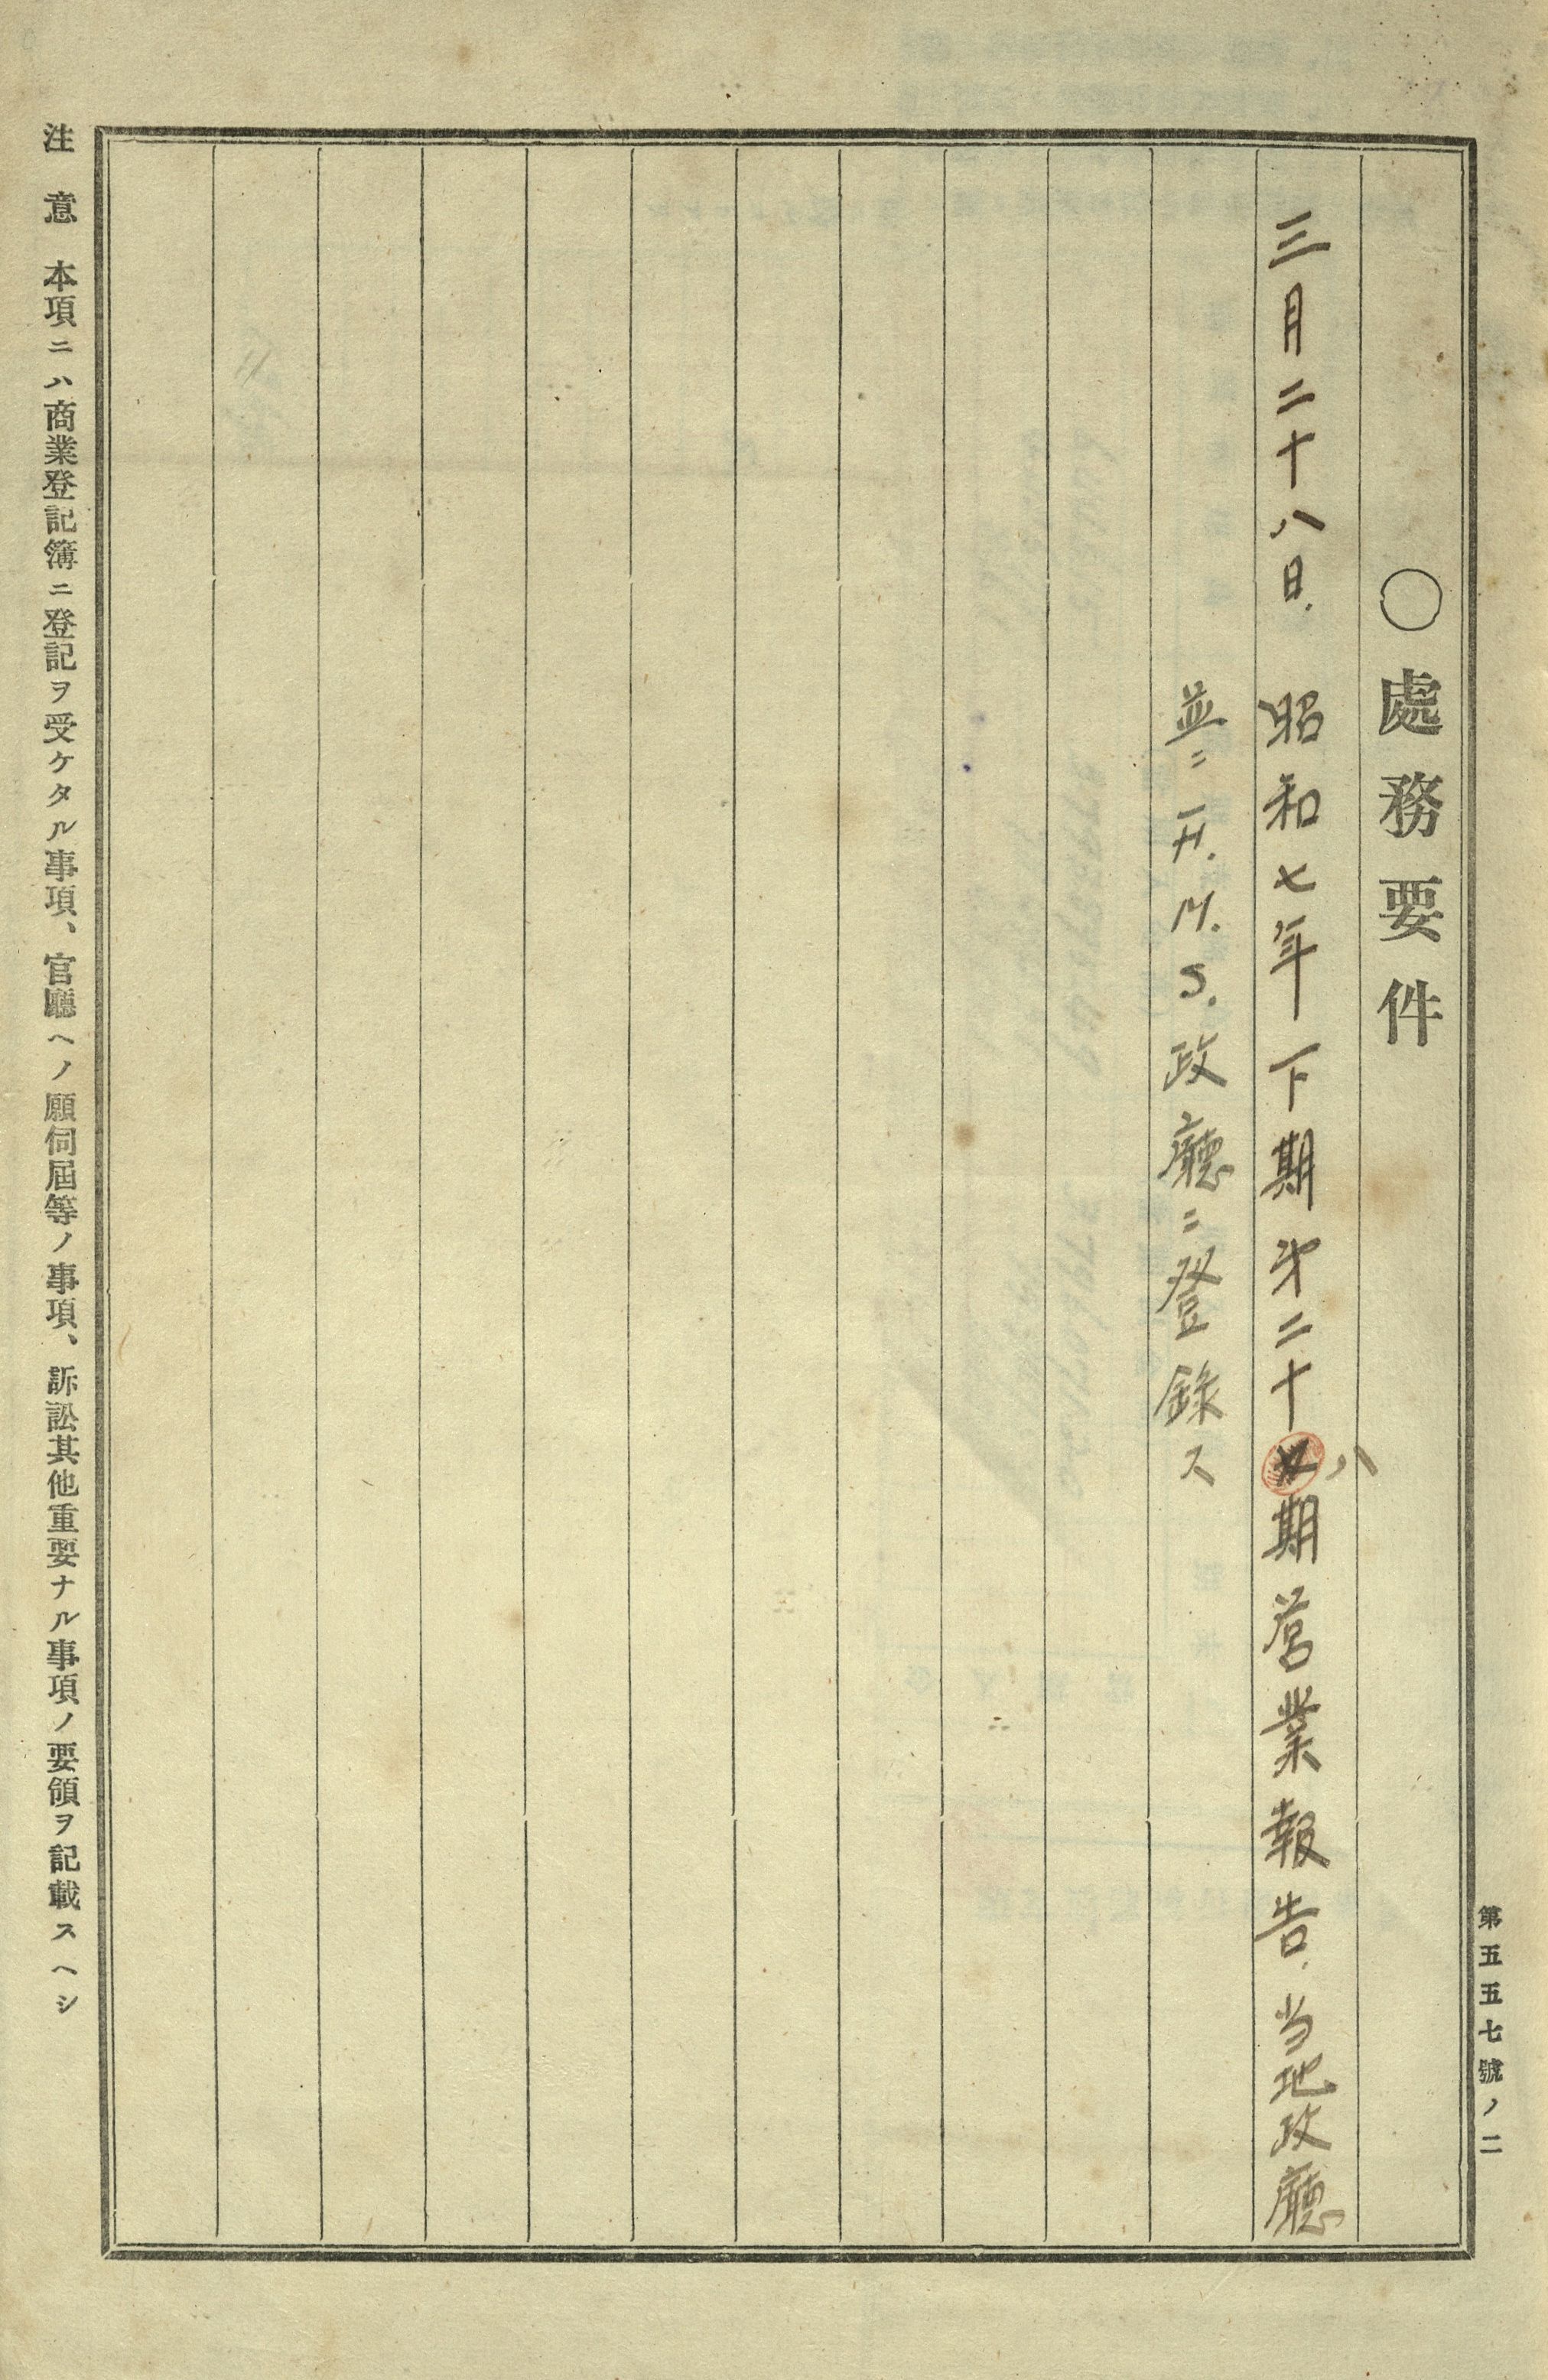 第五五七號ノ二
〇處務要件
三月二十八日.昭和七年下期㐧二十八期営業報告.当地政廳
並ニF.M.S.政廳ニ登錄ス
注意 本項ニハ商業登記簿ニ登記ヲ受ケタル事項、官廳ヘノ願伺屆等ノ事項、訴訟其他重要ナル事項ノ要領ヲ記載スヘシ